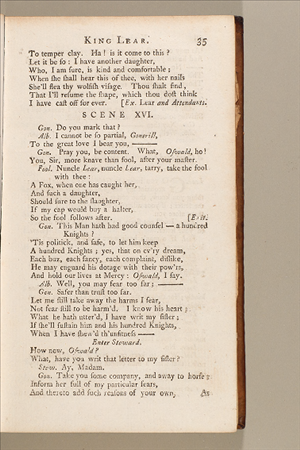 KING LEAR. 35
To temper clay. Ha! is it come to this?
Let it be so: I have another daughter,
Who, I am sure, is kind and comfortable;
When she shall hear this of thee, with her nails
She'll flea thy wolfish visage. Thou shalt find,
That I'll resume the shape, which thou dost think
I have cast off for ever. [Ex. Lear and Attendants.
SCENE XVI.
Gon. Do you mark that?
Alb. I cannot be so partial, Gonerill,
To the great love I bear you, ———
Gon. Pray you, be content. What, Oswald, ho!
You, Sir, more knave than fool, after your master.
Fool. Nuncle Lear, nuncle Lear, tarry, take the fool
with thee:
A Fox, when one has caught her,
And such a daughter,
Should sure to the slaughter,
If my cap would buy a halter,
So the fool follows after. [Exit.
Gon. This Man hath had good counsel — a hundred
Knights?
'Tis politick, and safe, to let him keep
A hundred Knights; yes, that on ev'ry dream,
Each buz, each fancy, each complaint, dislike,
He may enguard his dotage with their pow'rs,
And hold our lives at Mercy: Oswald, I say.
Alb. Well, you may fear too far; ———
Gon. Safer than trust too far.
Let me still take away the harms I fear,
Not fear still to be harm'd. I know his heart;
What he hath utter'd, I have writ my sister;
If she'll sustain him and his hundred Knights,
When I have shew'd th'unfitness ——
Enter Steward.
How now, Oswald?
What, have you writ that letter to my sister?
Stew. Ay, Madam.
Gon. Take you some company, and away to horse;
Inform her full of my particular fears,
And thereto add such reasons of your own, As